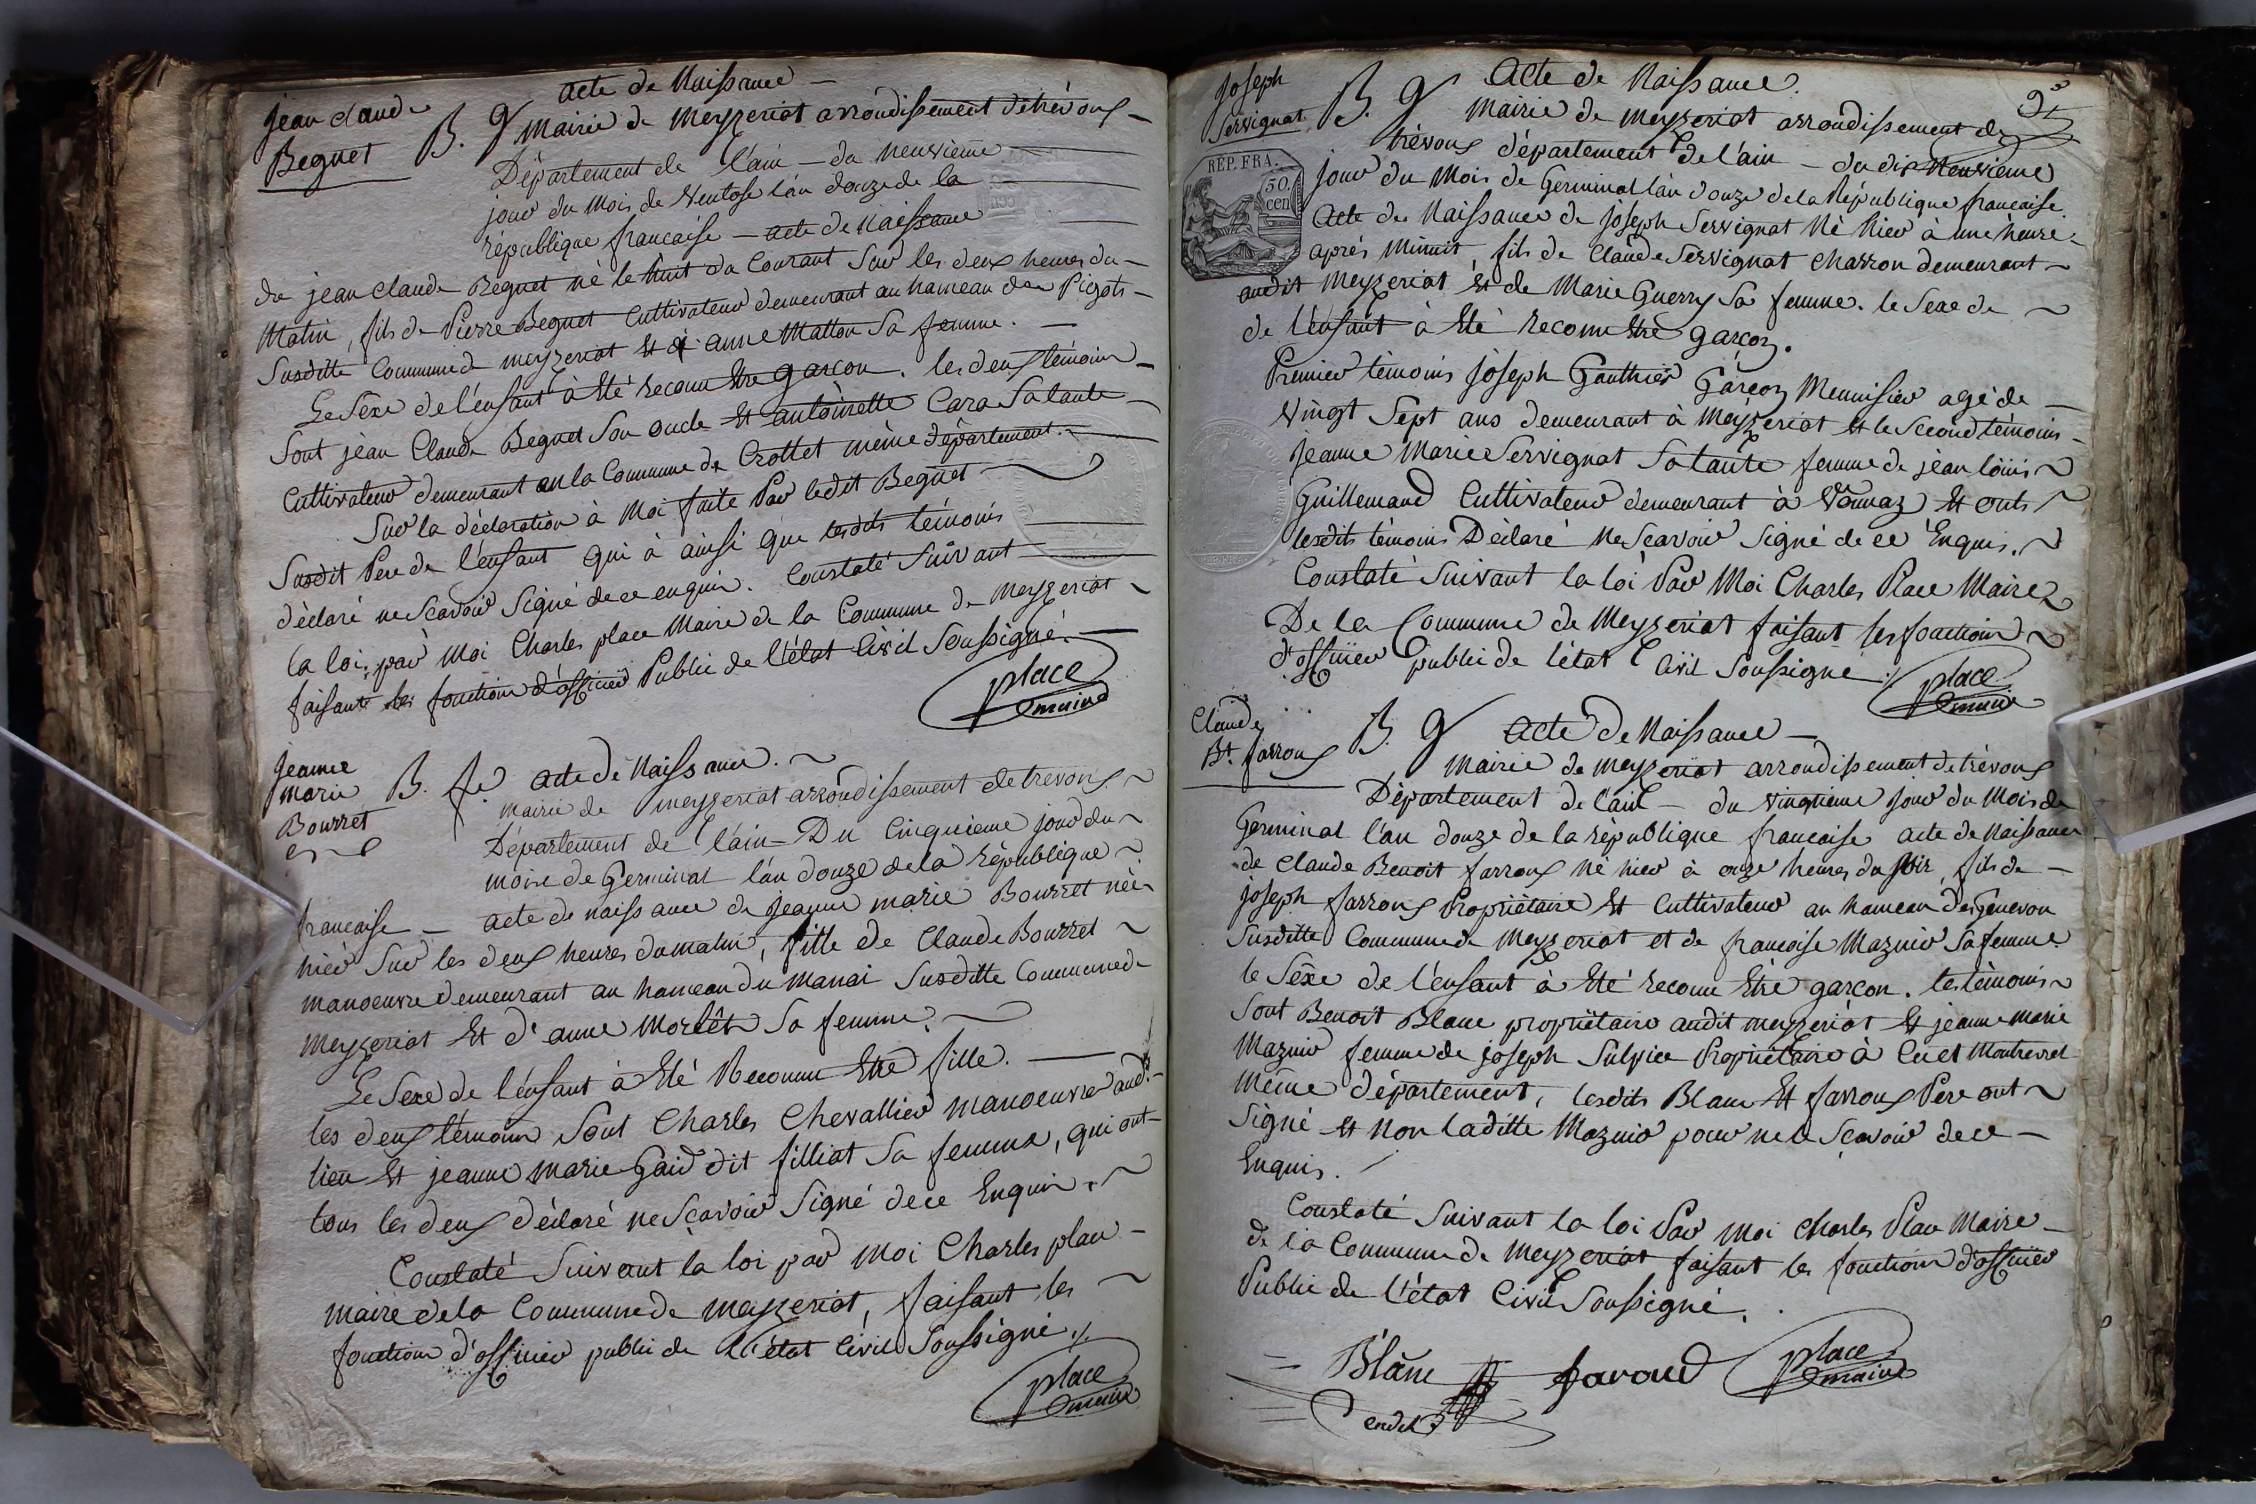 jean claude
Beguet
B. g
acte de Naissance —
mairie de meyzeriat arrondissement de trévoux —
Département de l'ain — du neuvieme
jour du mois de Ventose l'an douze de la
république française — acte de Naissance
de jean claude Beguet né le huit du Courant Sur les deux heures du —
Matin, fils de Pierre Beguet Cultivateur demeurant au hameau des Pigots —
Susditte Commune de meyzeriat Et d' anne Matton Sa femme. —
Le Séxe de l'enfant à Eté reconnu Etre garcon. les deux témoins —
Sont jean Claude Beguet Son oncle Et antoinette Cara Sa tante —
Cultivateur demeurant en la Commune de Crottet même département.
Sur la déclaration à Moi faite Par ledit Beguet
Susdit Pere de l'enfant qui à ainsi que lesdits témoins
déclaré ne Scavoir Signé de ce enquis. Constaté Suivant
la loi, par Moi Charles place Maire de la Commune de Meyzeriat
faisant les fonctions d'officier Public de l'état Civil Soussigné. —
place
maire
jeanne
marie
Bourret
B. fe
acte de Naissance.
mairie de meyzeriat arrondissement de trevoux
Département de l'ain — Du Cinquieme jour du
mois de Germinal l'an douze de la république
francaise — acte de naissance de jeanne marie Bourret née
hier Sur les deux heures du matin, fille de Claude Bourret
manoeuvre demeurant au hameau du Manai Susditte Commune de
meyzeriat Et d'anne Morlêt Sa femme.
Le Sexe de l'enfant à Eté Reconnu Etre fille. —
les deux témoins Sont Charles Chevallier manoeuvre aud.
lieu Et jeanne marie Gaid dit filliat Sa femme, qui ont —
tous les deux déclaré ne Sçavoir Signé de ce Enquis.
Constaté Suivant la loi par Moi Charles place —
maire de la Commune de meyzeriat, faisant les
fonctions d'officier public de l'état Civil Soussigné ./.
place
maire
joseph
Servignat
B. g
Acte de Naissance.
mairie de meyzeriat arrondissement de
trévoux département de l'ain — du dix Neuvieme
RÉP. FRA.
50.
cen
jour du Mois de Germinal l'an douze de la République francaise.
Acte de Naissance de joseph Servignat Né hier à une heure
aprés Minuit, fils de Claude Servignat charron demeurant
audit Meyzeriat Et de Marie Guerry Sa femme. le Sexe de
de l'enfant à Eté reconnu Etre garçon.
Premier témoins joseph Gauthier Garçon Menuisier agé de —
Vingt Sept ans demeurant à Meyzeriat Et le Second témoins
Jeanne Marie Servignat Sa tante femme de jean loüis
Guillemaud Cultivateur demeurant à Vonnaz Et onts
lesdits témoins Déclaré Ne Scavoir Signé de ce Enquis.
Constaté Suivant la loi Par Moi Charles Place Maire
De la Commune de Meyzeriat faisant les fonctions
d'officier public de l'état Civil Soussigné ./.
place
maire
Claude
Bt. farroux
B. g
Acte De Naissance —
Mairie de meyzeriat arrondissement de trévoux
Département de l'ain — du vingtieme jour du Mois de
Germinal l'an douze de la république francaise acte de Naissance
de Claude Benoit farroux Né hier à onze heures du soir, fils de —
joseph farroux Propriétaire Et Cultivateur au hameau des Genevon
Susditte Commune de Meyzeriat et de francoise Maznio Sa femme
le Séxe de l'enfant à Eté reconnu Etre garcon. les témoins
Sont Benoit Blanc propriétaire audit meyzeriat Et jeanne marie
Maznio femme de joseph Sulpice Propriétaire à Cuet Montrevel
Même département, lesdits Blanc Et farroux Pere ont
Signé Et non laditte Maznio pour ne le Sçavoir de ce —
Enquis.
Constaté Suivant la loi Par Moi Charles Place Maire —
de la Commune de Meyzeriat faisant les fonctions d'officier
Public de l'état Civil Soussigné.
Blanc
favoud
place
maire